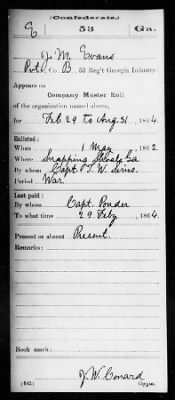 (Confederate.)
E 53 Ga.
J. M. Evans
Pvt., Co. B, 53 Reg't Georgia Infantry.
Appears on
Company Muster Roll
of the organization named above,
for Feb 29 to Aug 31, 1864.
Enlisted:
When 1 May, 1862
Where Snapping Shoals Ga
By whom Capt. P. T. W. Sims.
Period War
Last paid:
By whom Capt. Ponder
To what time 29 Feby, 1864.
Present or absent Present
Remarks:
Book mark:
J. W. Conard
(642) Copyist.